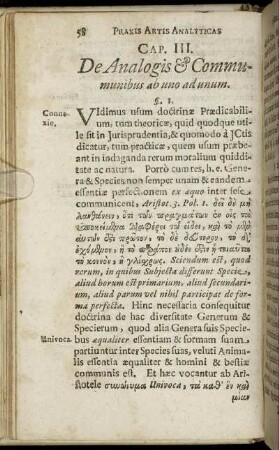 58 PRAXIS ARTIS ANALYTICAS
CAP. III.
De Analogis & Commu-
munibus ab uno ad unum.
§. 1.
Conne-
xio.
VIdimus usum doctrinæ Prædicabili-
um, tum theoricæ, quid quodque uti-
le sit in Jurisprudentia, & quomodo à JCtis
dicatur, tum practicæ, quem usum præbe-
at in indaganda rerum moralium quiddi-
tate ac natura. Porrò cum res, h. e. Gene-
ra & Species non semper unam & eandem
essentiæ perfectionem ex æquo inter sese
communicent, Aristot. 3. Pol. 1. δεῖ δὲ μὴ
λανθάνειν, ὅτι τῶν πραγμάτων ἐν οἷς τὰ
ὑποκείμενα διαφέρει τῷ εἴδει, καὶ τὸ μὲν
αὐτῶν ἐστι πρῶτον, τὸ δὲ δεύτερον, τὸ δ'
ἐχόμενον, ἢ τὸ
τὸ κοινὸν, ἢ γλίσχρως. Sciendum est, quod
rerum, in quibus Subjecta differunt Specie,
aliud horum est primarium, aliud secundari-
um, aliud parum vel nihil participat de for-
ma perfecta. Hinc necessaria consequitur
doctrina de hac diversitate Generum &
Specierum, quo alia Genera suis Specie-
Univoca.
bus æqualiter essentiam & formam suam
partiuntur inter Species suas, veluti Anima-
lis essentia æqualiter & homini & bestiæ
communis est. Et hæc vocantur ab Ari-
stotele συνώνυμα Univoca, τὰ καθ' ἓν καὶ